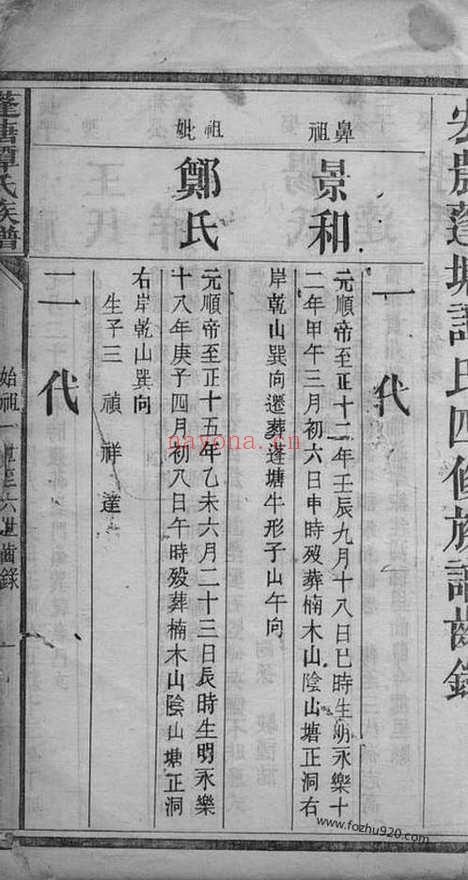 宏農蓬塘譚氏四修族譜齒錄
一代
鼻祖
景和
元順帝至正十二年壬辰九月十八日巳時生明永樂十
二年甲午三月初六日申時殁葬楠木山陰山塘正洞右
岸乾山巽向遷葬逢塘牛形子山午向
祖妣
鄭氏
元順帝至正十五年乙未六月二十三日辰時生明永樂
十八年庚子四月初八日午時殁葬楠木山陰山塘正洞
右岸乾山巽向
生子三 禎 祥 達
二代
蓬塘譚氏族譜
始祖一世至六世齒錄
nayona.cn
www.fozhu920.com